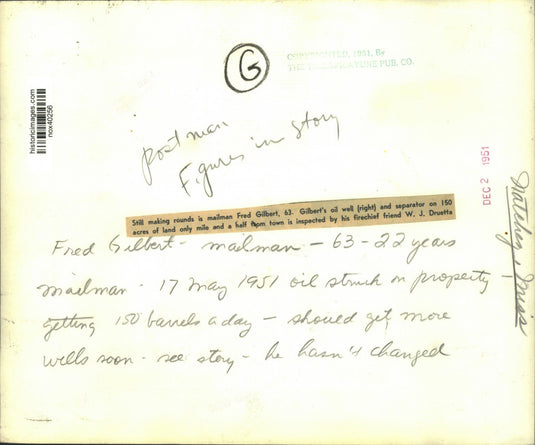 G
COPYRIGHTED, 1951, By
THE PUB. CO.
historicimages.com
nox40256
Postman
Figures in Story
DEC 2 1951
Still making rounds is mailman Fred Gilbert, 63. Gilbert's oil well (right) and separator on 150
acres of land only mile and a half from town is inspected by his firechief friend W. J. Druetta
Fred Gilbert - mailman - 63 - 22 years
mailman - 17 May 1951 oil struck on property
getting 150 barrels a day - should get more
wells soon - see story - he hasn't changed
Natchez, Miss